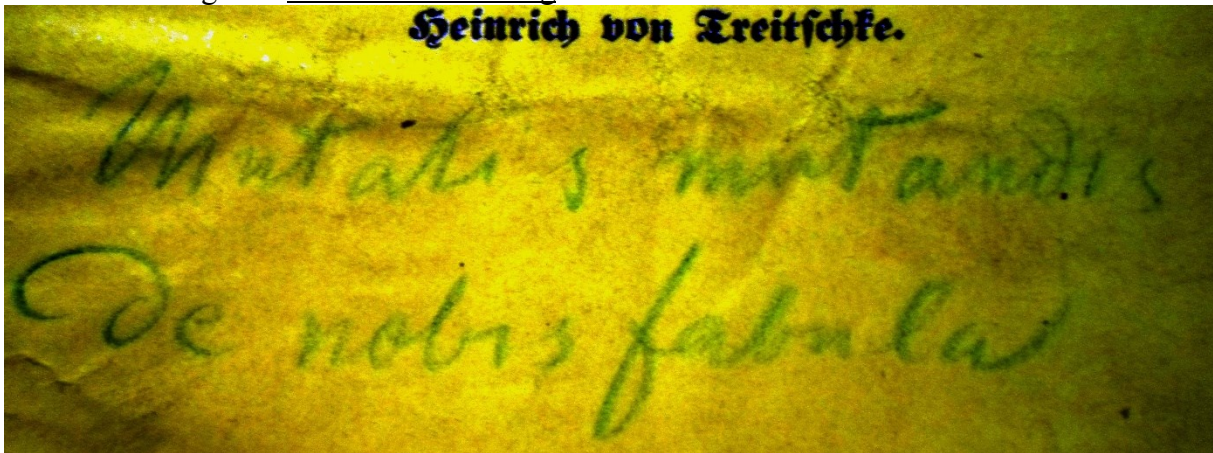 Heinrich von Treitschke.
Mutatis mutandis
De nobis fabula